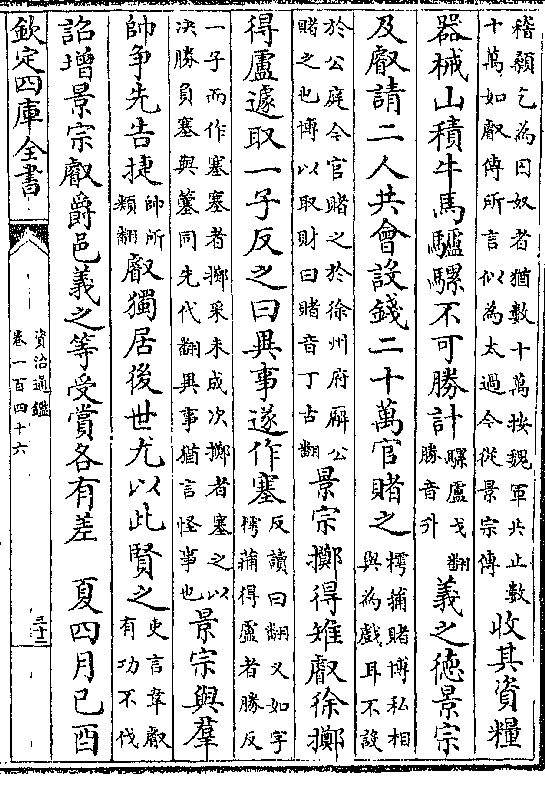 稽顙乞為囚奴者猶數十萬按魏軍共止數
十萬如叡傳所言似為太過今從景宗傳
收其資糧
器械山積牛馬驢騾不可勝計
騾盧戈翻
勝音升
義之徳景宗
及叡請二人共會設錢二十萬官賭之
樗蒱賭博私相
與為戲耳不設
於公庭今官賭之於徐州府廨公
賭之也博以取財曰賭音丁古翻
景宗擲得雉叡徐擲
得盧遽取一子反之曰異事遂作塞
反讀曰翻又如字
樗蒱得盧者勝反
一子而作塞塞者擲采未成次擲者塞之以
決勝負塞與簺同先代翻異事猶言怪事也
景宗與羣
帥争先告捷
帥所
類翻
叡獨居後世尤以此賢之
史言韋叡
有功不伐
詔增景宗叡爵邑義之等受賞各有差　夏四月己酉
欽定四庫全書
資治通鑑
卷一百四十六
三十二